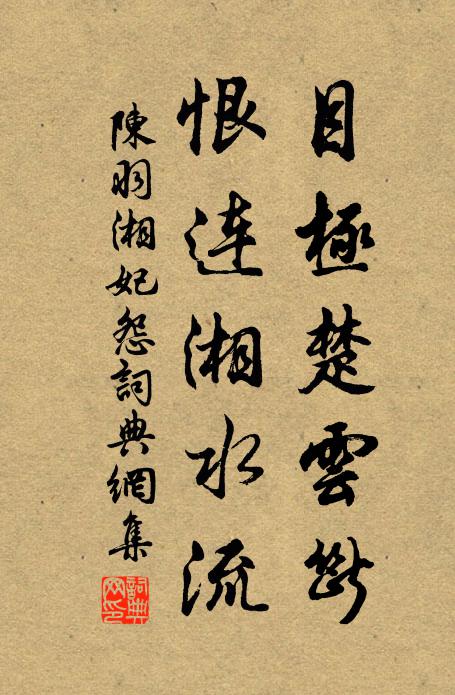 目極楚雲斷
恨連湘水流
陳羽湘妃怨詞典網集
詞典網印